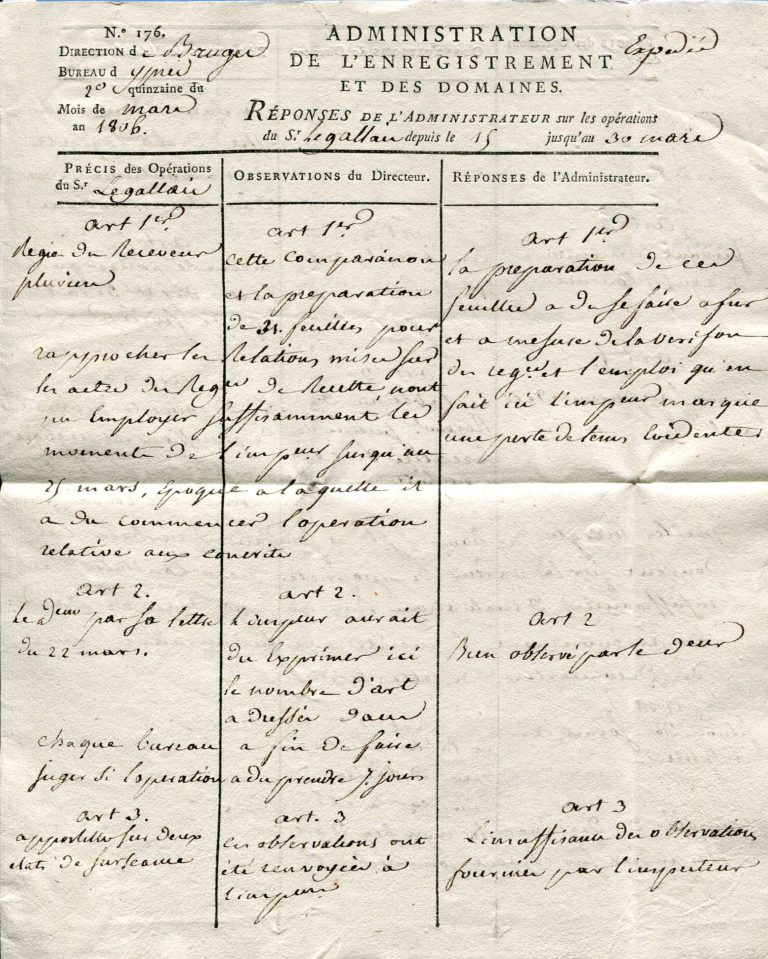 N.º 176.
DIRECTION de Bruges
BUREAU d ypres
2e quinzaine du
Mois de mars
an 1806.
ADMINISTRATION
DE L'ENREGISTREMENT
ET DES DOMAINES.
Expedié
RÉPONSES DE L'ADMINISTRATEUR sur les opérations
du S.r Legallais depuis le 15 jusqu'au 30 mars
PRÉCIS des Opérations
du S.r Legallais
art 1er
Regie du Receveur
pluvieu
OBSERVATIONS du Directeur.
art 1er
cette Comparaison
et la preparation
de 31. feuilles pour
rapprocher les Relations mises sur
les actes des Regres de Recette, n'ont
pu Employer suffisamment les
moments de l'inspeur jusqu'au
25 mars, Epoque a laquelle il
a du commencer l'operation
relative aux conscrits
RÉPONSES de l'Administrateur.
art 1er
la preparation de ces
feuilles a du se faire a fur
et a mesure de la verifon
des regres et l'emploi qu'en
fait ici l'inspeur marque
une perte de tems Evidente
art 2.
Le deur par sa lettre
du 22 mars.
art 2.
L'inspeur aurait
du Exprimer ici
le nombre d'art
adressés dans
chaque bureau a fin de faire
juger si l'operation a du prendre 7. jours
art 2
Bien observé par le deur
art 3.
apostilles sur deux
etats de surseance
art. 3
ces observations ont
été renvoyées à
l'inspeur
art 3
L'insuffisance des observations
fournies par l'inspecteur